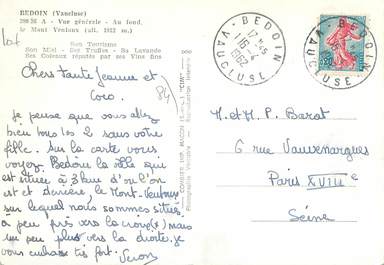 BEDOIN (Vaucluse)
208 26 A - Vue générale - Au fond,
le Mont Ventoux (alt. 1912 m.)
Son Tourisme
Son Miel - Ses Truffes - Sa Lavande
Ses Coteaux réputés par ses Vins fins
Chers tante Jeanne et
Coco.
84
Je pense que vous allez
bien tous les 2 sans votre
fille. Sur la carte vous
voyez Bédoin la ville qui
est située à 3 km d'où l'on
est et derrière, le Mont-Ventoux
sur lequel nous sommes situés
à peu près vers la croix (x) mais
un peu plus vers la droite. je
vous embrasse très fort.
COMBIER IMP. MACON
"CIM"
BEDOIN
17 H 45
16-4
1962
VAUCLUSE
BEDOIN
VAUCLUSE
M. et M. P. Barat
6 rue Vauvenargues
Paris XVIII e
Seine